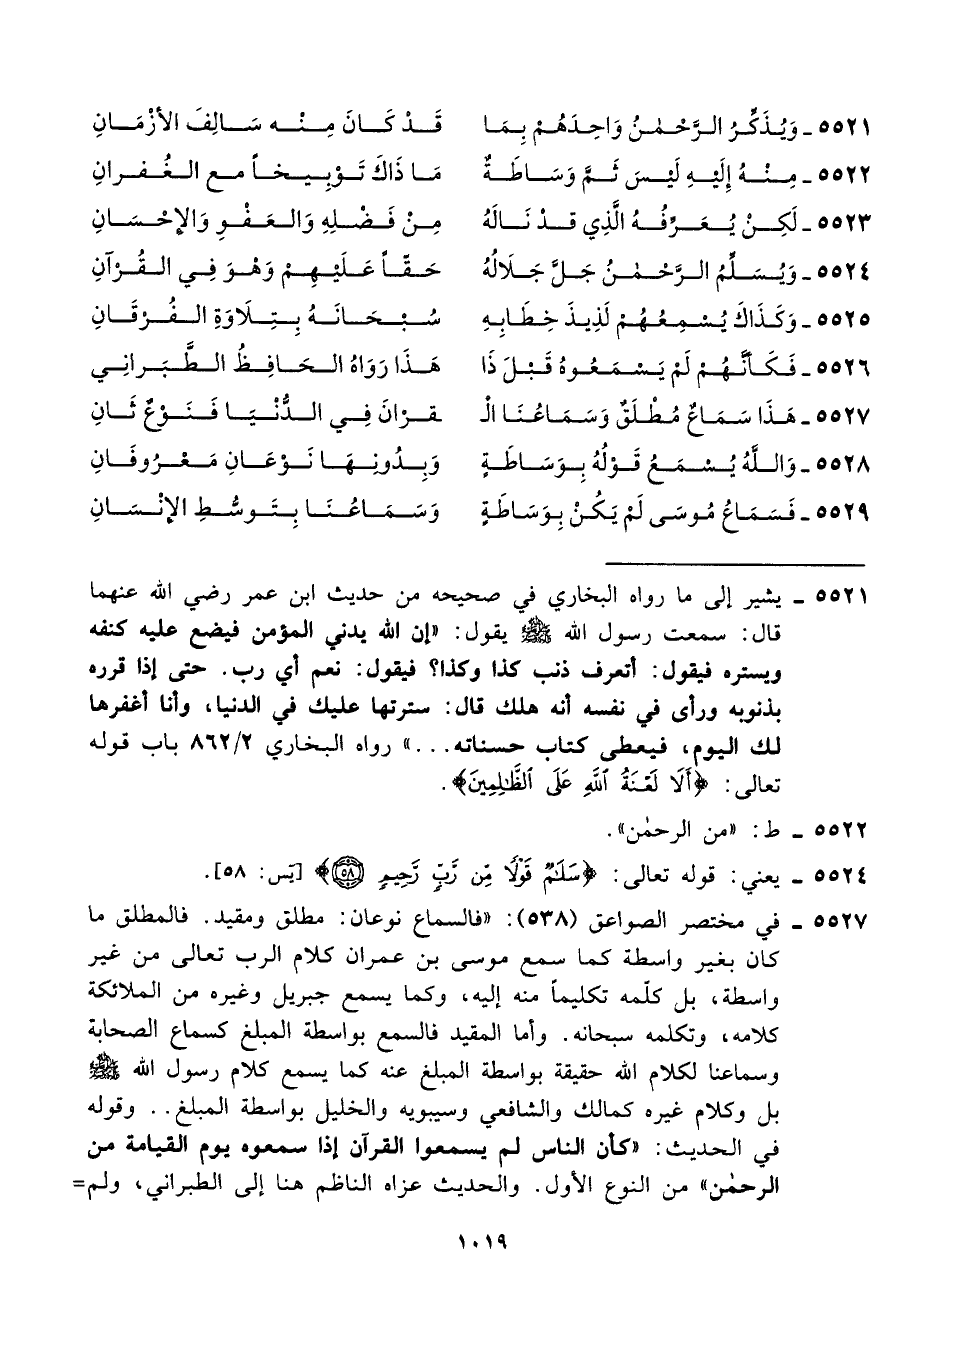 ٥٥٢١ ـ وَيُذَكِّرُ الرَّحْمٰنُ وَاحِدَهُمْ بِمَا قَدْ كَانَ مِنْهُ سَالِفَ الأَزْمَانِ
٥٥٢٢ ـ مِنْهُ إِلَيْهِ لَيْسَ ثَمَّ وَسَاطَةٌ مَا ذَاكَ تَوْبِيخاً مع الغُفرانِ
٥٥٢٣ ـ لَكِنْ يُعَرِّفُهُ الَّذِي قدْ نَالَهُ مِنْ فَضْلِهِ وَالعَفْوِ وَالإحْسَانِ
٥٥٢٤ ـ وَيُسَلِّمُ الرَّحْمٰنُ جَلَّ جَلَالُهُ حَقّاً عَلَيْهِمْ وَهْوَ فِي القُرْآنِ
٥٥٢٥ ـ وَكَذَاكَ يُسْمِعُهُمْ لَذِيذَ خِطَابِهِ سُبْحَانَهُ بِتِلَاوَةِ الفُرْقَانِ
٥٥٢٦ ـ فَكَأَنَّهُمْ لَمْ يَسْمَعُوهُ قَبْلَ ذَا هَذَا رَوَاهُ الحَافِظُ الطَّبَرانِي
٥٥٢٧ ـ هَذَا سَمَاعٌ مُطْلَقٌ وَسَمَاعُنَا الْ قرْآنَ فِي الدُّنْيَا فَنَوْعٌ ثَانِ
٥٥٢٨ ـ وَاللَّهُ يُسْمَعُ قَوْلُهُ بِوَسَاطَةٍ وَبِدُونِهَا نَوْعَانِ مَعْرُوفَانِ
٥٥٢٩ ـ فَسَمَاعُ مُوسَى لَمْ يَكُنْ بِوَسَاطَةٍ وَسَمَاعُنَا بِتَوسُّطِ الإنْسَانِ
٥٥٢١ ـ يشير إلى ما رواه البخاري في صحيحه من حديث ابن عمر رضي الله عنهما
قال: سمعت رسول الله ﷺ يقول: «إن الله يدني المؤمن فيضع عليه كنفه
ويستره فيقول: أتعرف ذنب كذا وكذا؟ فيقول: نعم أي رب. حتى إذا قرره
بذنوبه ورأى في نفسه أنه هلك قال: سترتها عليك في الدنيا، وأنا أغفرها
لك اليوم، فيعطى كتاب حسناته...» رواه البخاري ٨٦٢/٢ باب قوله
تعالى: ﴿أَلَا لَعْنَةُ ٱللَّهِ عَلَى ٱلظَّٰلِمِينَ﴾.
٥٥٢٢ ـ ط: «من الرحمٰن».
٥٥٢٤ ـ يعني: قوله تعالى: ﴿سَلَٰمٌ قَوْلًا مِّن رَّبٍّ رَّحِيمٍ ۝٥٨﴾ [يٓس: ٥٨].
٥٥٢٧ ـ في مختصر الصواعق (٥٣٨): «فالسماع نوعان: مطلق ومقيد. فالمطلق ما
كان بغير واسطة كما سمع موسى بن عمران كلام الرب تعالى من غير
واسطة، بل كلّمه تكليماً منه إليه، وكما يسمع جبريل وغيره من الملائكة
كلامه، وتكلمه سبحانه. وأما المقيد فالسمع بواسطة المبلغ كسماع الصحابة
وسماعنا لكلام الله حقيقة بواسطة المبلغ عنه كما يسمع كلام رسول الله ﷺ
بل وكلام غيره كمالك والشافعي وسيبويه والخليل بواسطة المبلغ.. وقوله
في الحديث: «كأن الناس لم يسمعوا القرآن إذا سمعوه يوم القيامة من
الرحمٰن» من النوع الأول. والحديث عزاه الناظم هنا إلى الطبراني، ولم=
١٠١٩